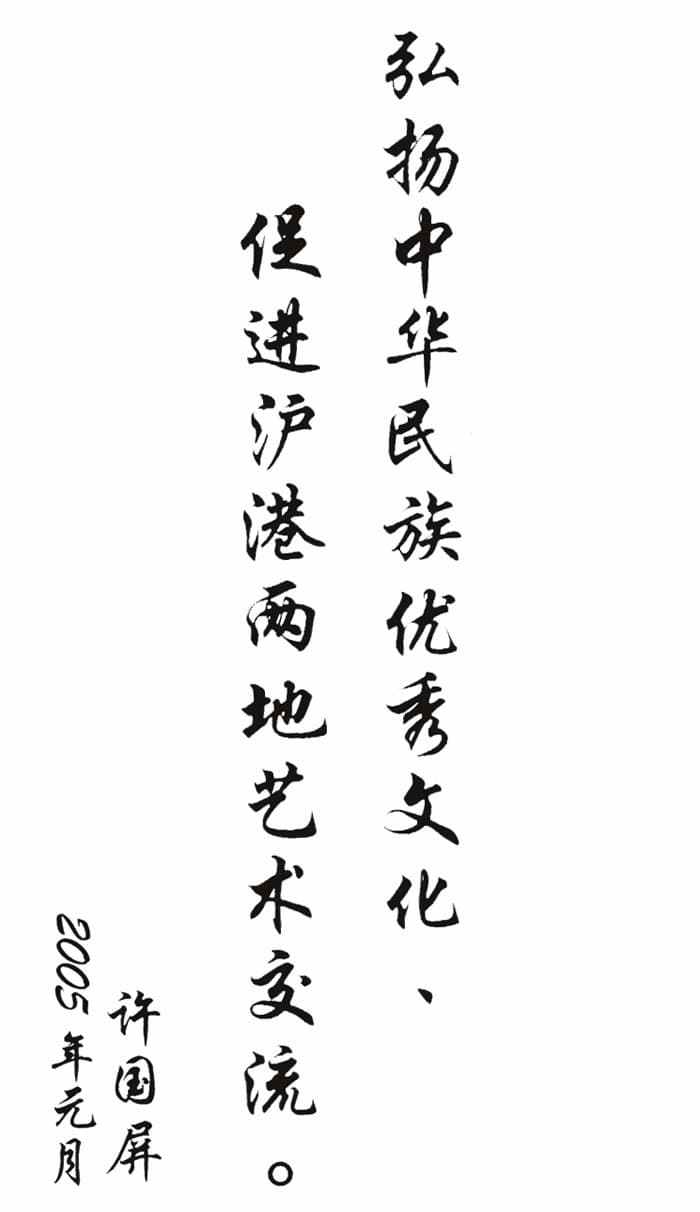 弘扬中华民族优秀文化、
促进沪港两地艺术交流。
许国屏
2005年元月